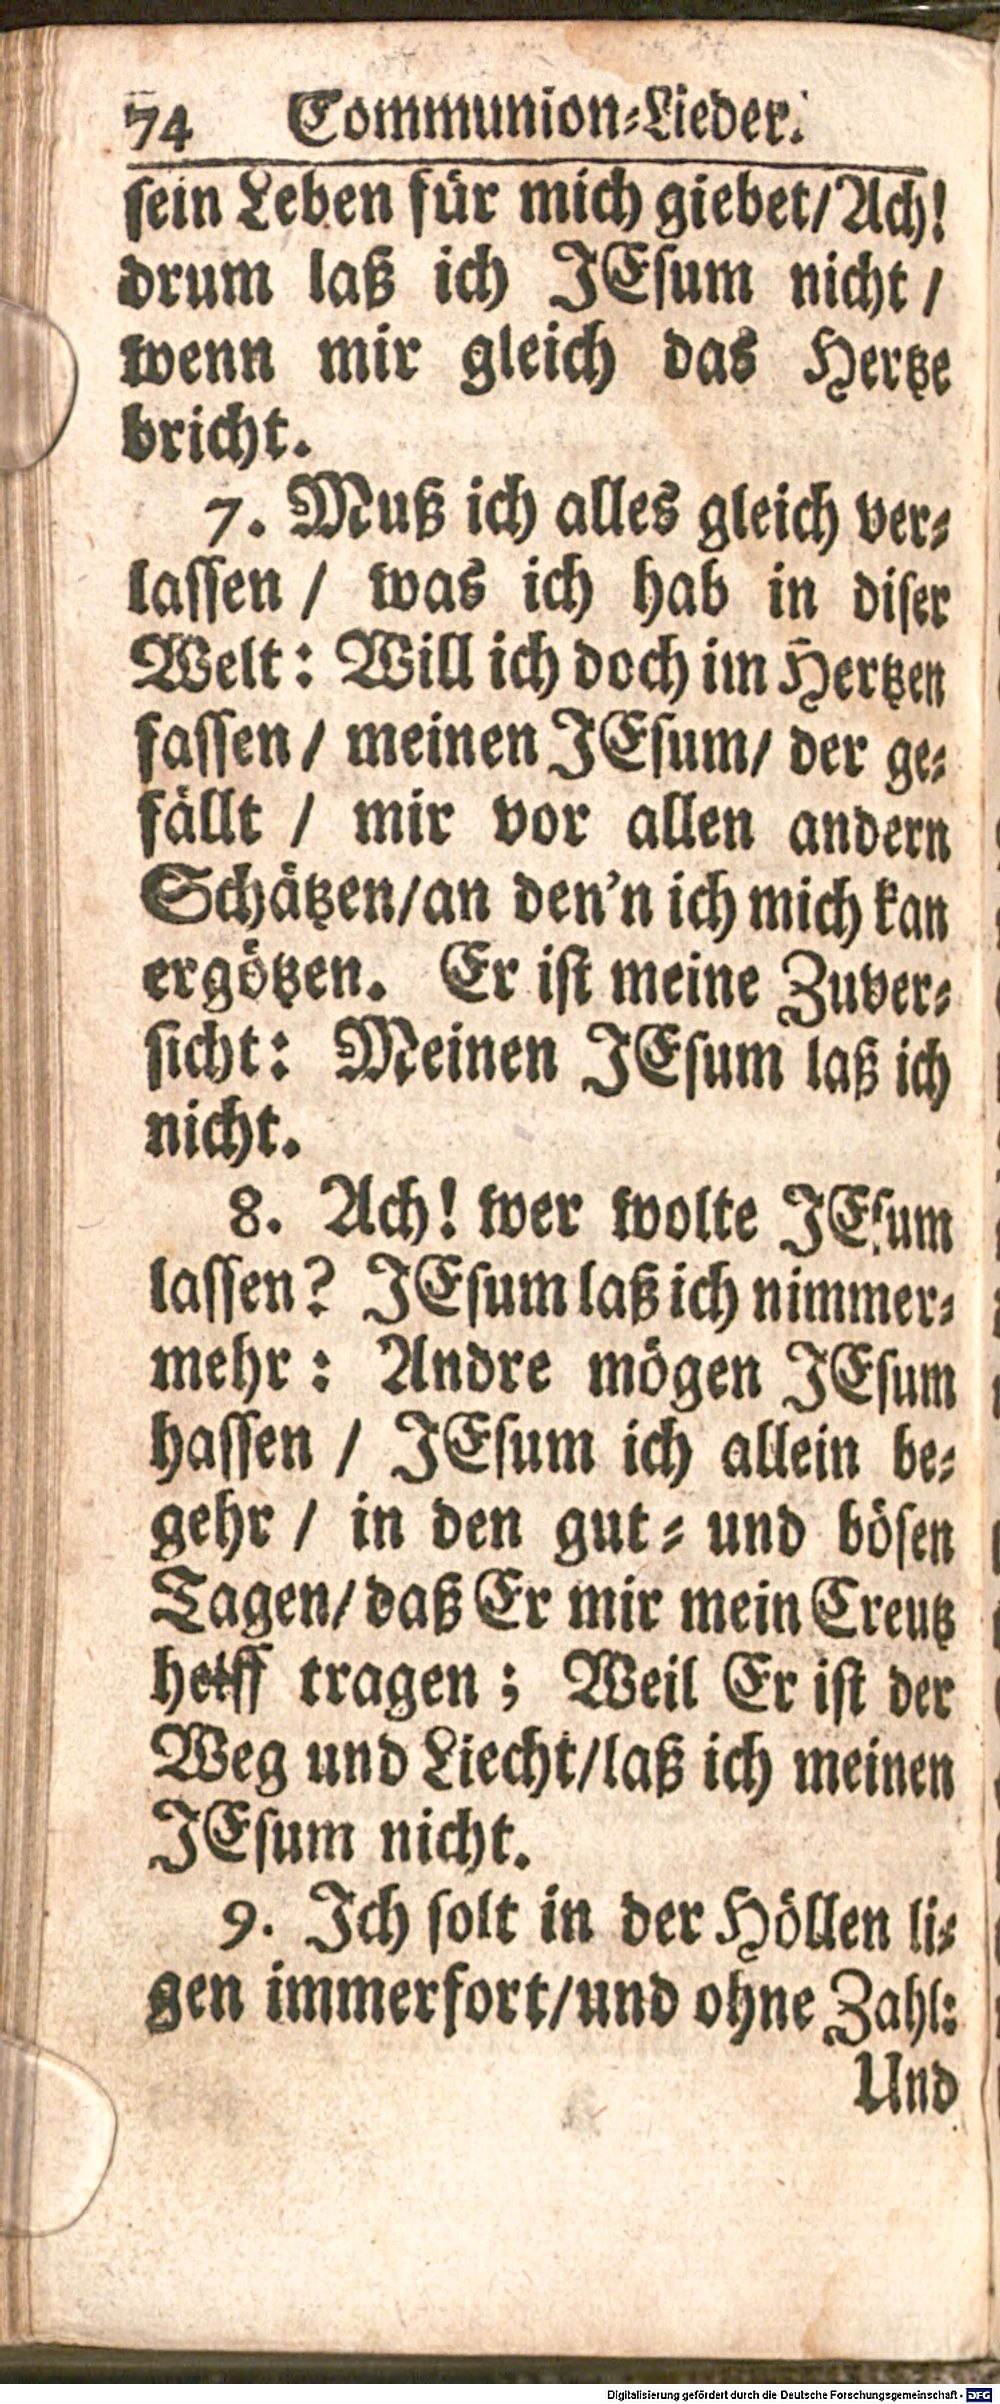 74 Communion-Lieder.
sein Leben für mich giebet/ Ach!
drum laß ich JEsum nicht /
wenn mir gleich das Hertze
bricht.
7. Muß ich alles gleich ver-
lassen / was ich hab in diser
Welt: Will ich doch im Hertzen
fassen / meinen JEsum/ der ge-
fällt / mir vor allen andern
Schätzen/an den'n ich mich kan
ergötzen. Er ist meine Zuver-
sicht: Meinen JEsum laß ich
nicht.
8. Ach! wer wolte JEsum
lassen? JEsum laß ich nimmer-
mehr: Andre mögen JEsum
hassen / JEsum ich allein be-
gehr / in den gut- und bösen
Tagen/ daß Er mir mein Creutz
helff tragen; Weil Er ist der
Weg und Liecht/laß ich meinen
JEsum nicht.
9. Ich solt in der Höllen li-
gen immerfort/und ohne Zahl:
Und
Digitalisierung gefördert durch die Deutsche Forschungsgemeinschaft - DFG